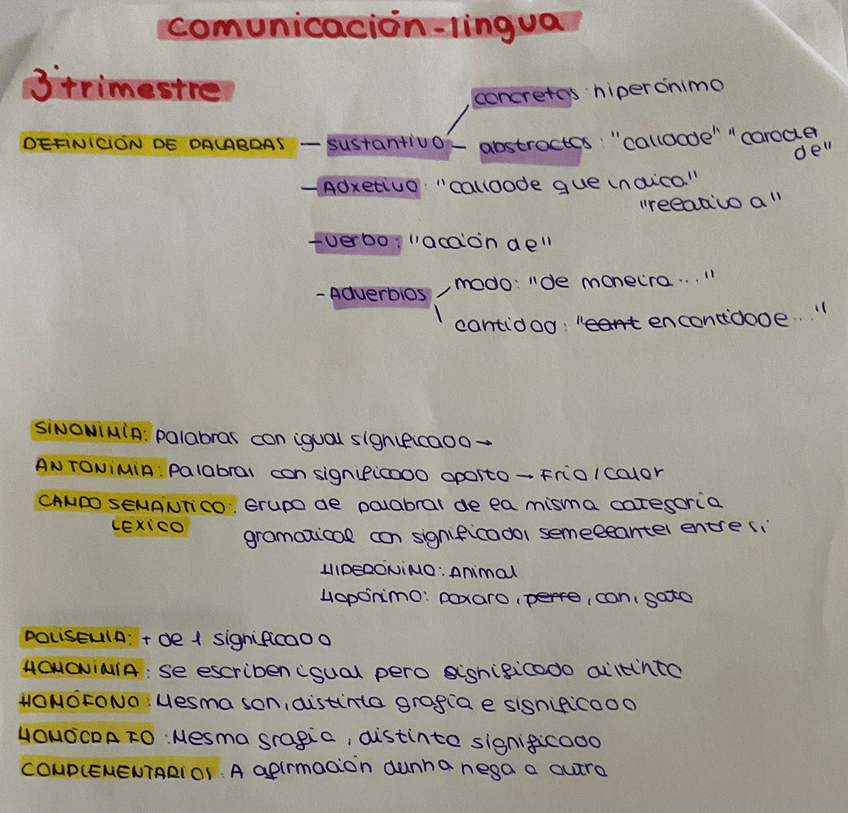 comunicación-lingua
3º trimestre
concretos: hiperónimo
DEFINICIÓN DE PALABRAS — sustantivo — abstractos: "calidade" "caracter de"
— Adxetivo: "calidade que indica"
"relativo a"
- verbo: "acción de"
- Adverbios modo: "de maneira..."
cantidad: "cant en cantidade..."
SINONIMIA: palabras con igual significado →
ANTONIMIA: palabras con significado oposto → Frío/calor
CAMPO SEMÁNTICO: Grupo de palabras de la misma categoría
LEXICO gramatical con significados semellantes entre si
HIPERÓNIMO: Animal
Hopónimo: paxaro, perro, can, gato
POLISEMIA: + de 1 significado
HOMONIMIA: se escriben igual pero significado distinto
HOMÓFONO: Mesma son, distinta grafía e significado
HOMÓGRAFO: Mesma grafía, distinto significado
COMPLEMENTARIOS: A afirmación dunha nega a outra